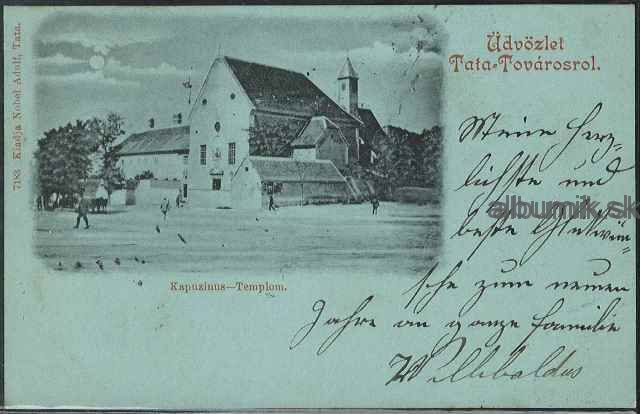 Üdvözlet
Tata-Továrosrol.
7183 Kiadja Nobel Adolf, Tata.
Kapuzinus—Templom.
Meine Herz-
lichste und
albumik.sk
beste Glückwün-
sche zum neuen
Jahre an ganze Familie
Willibaldus